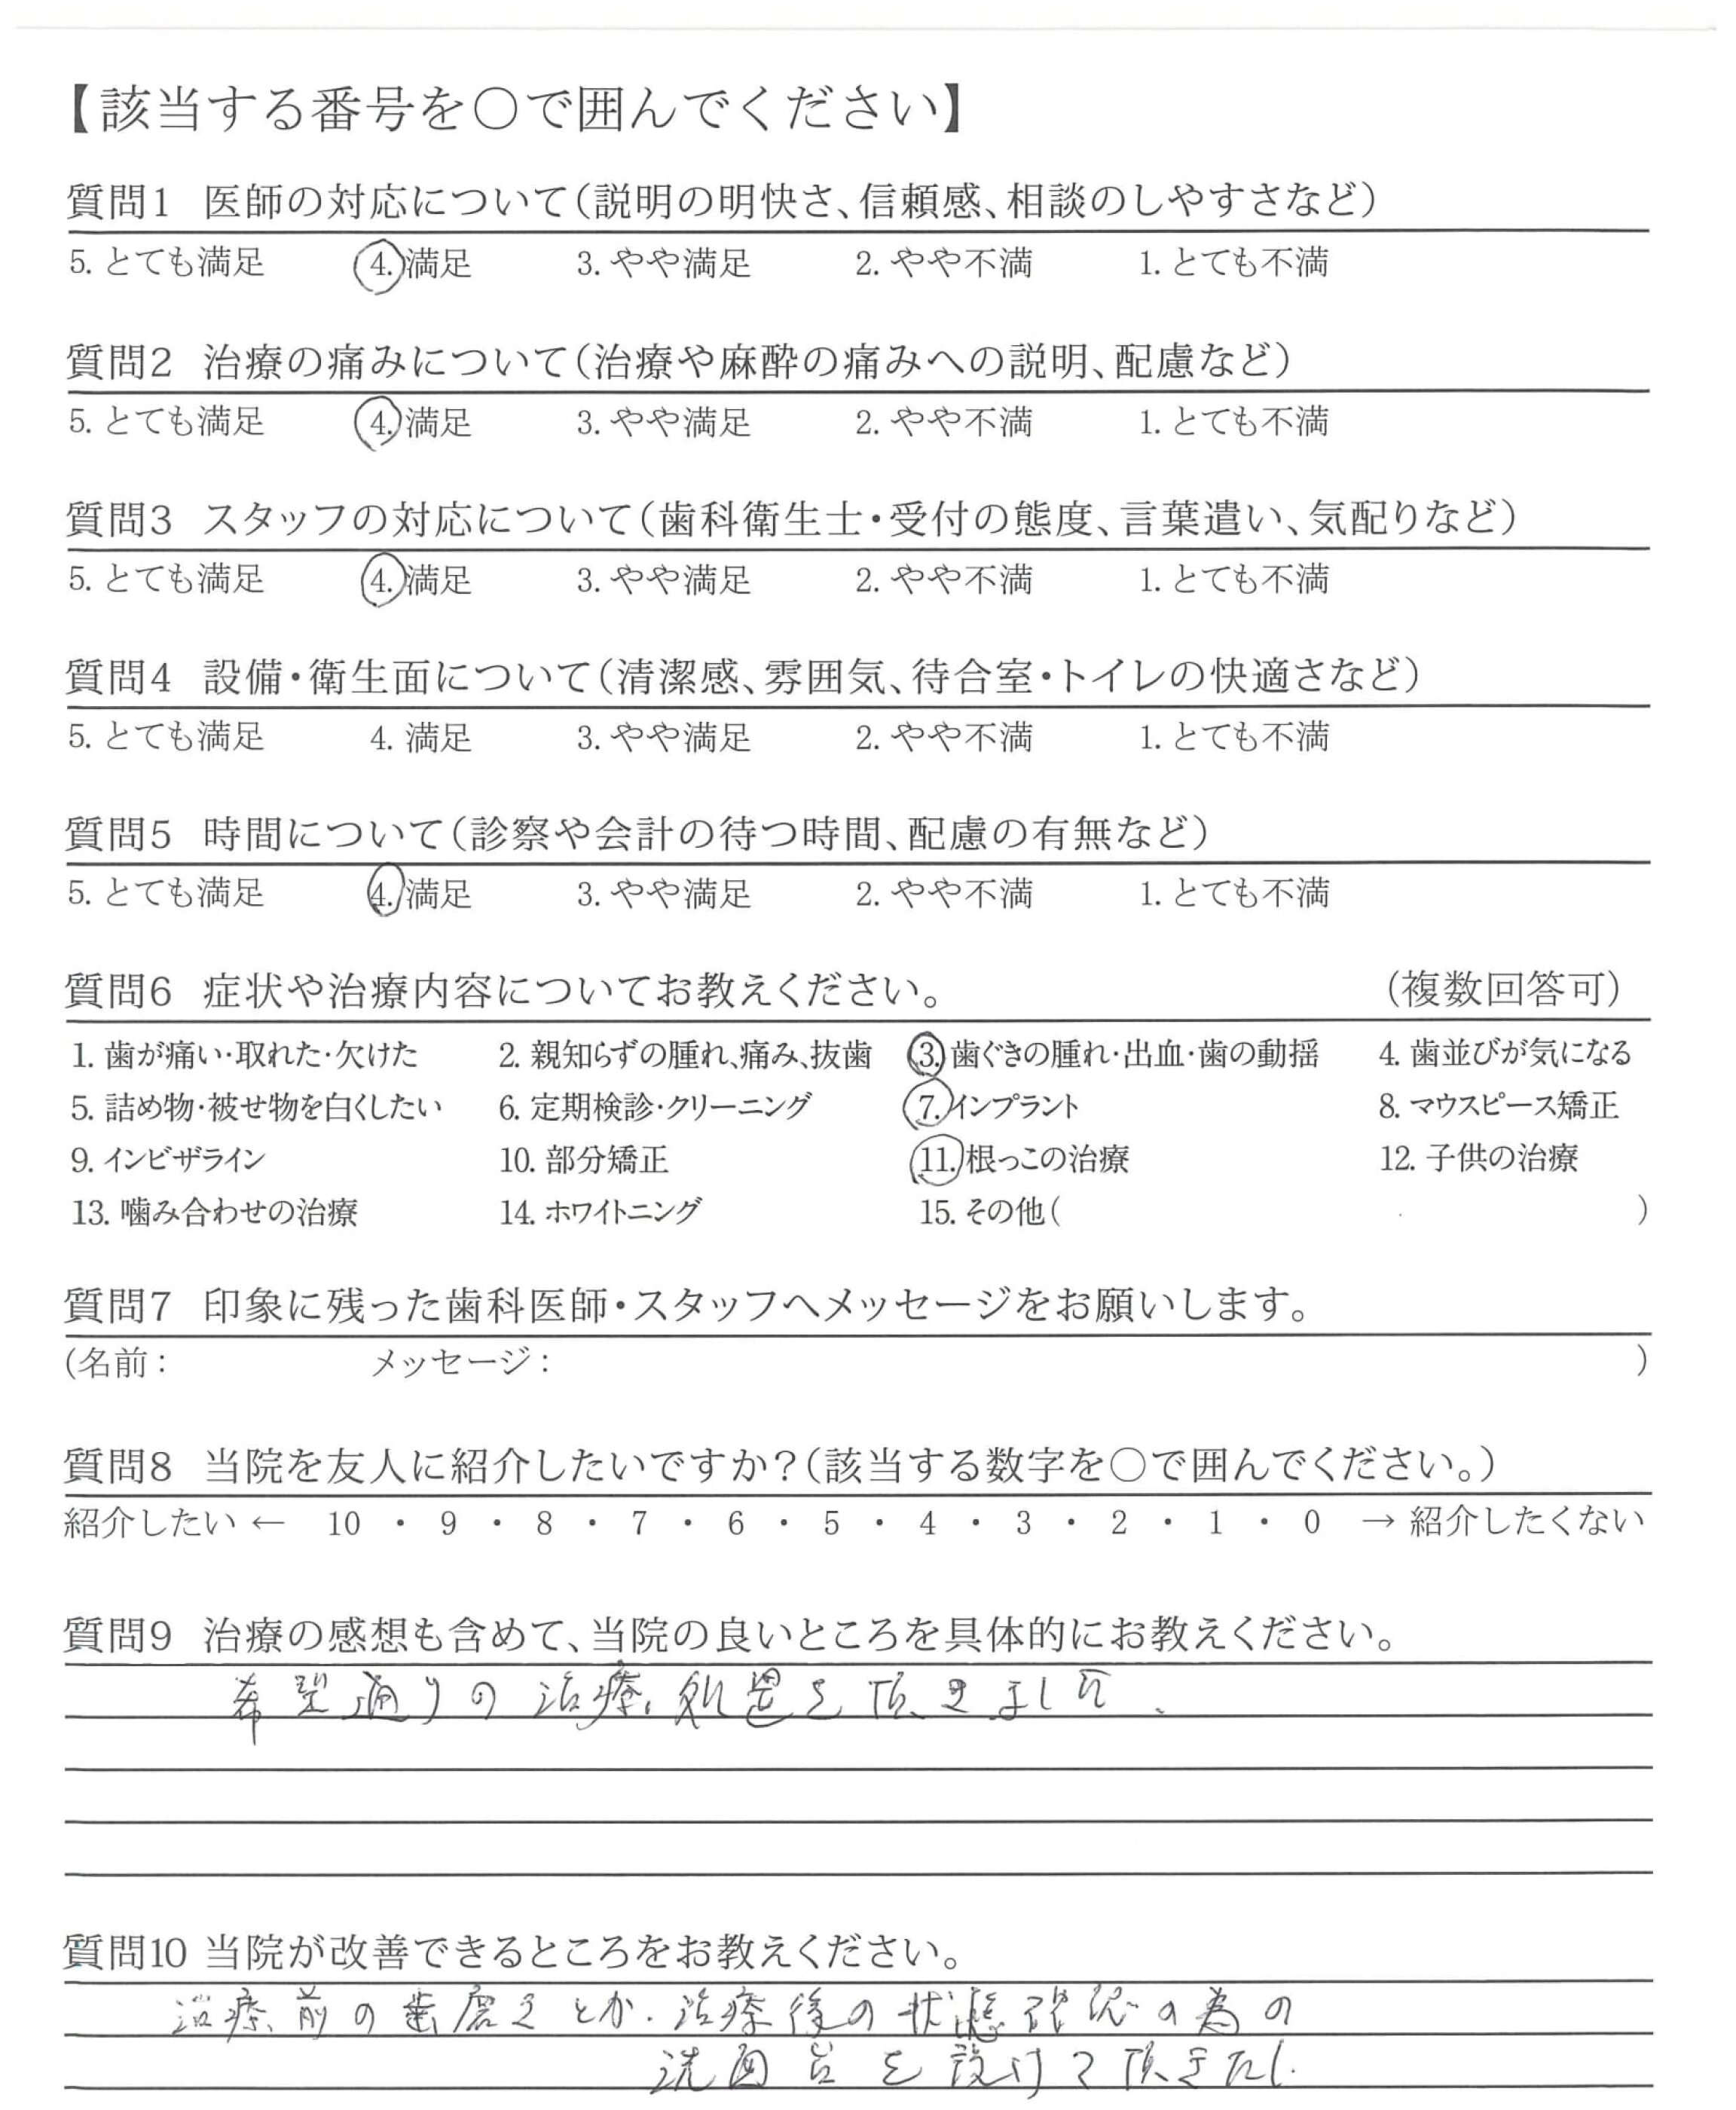 【該当する番号を○で囲んでください】
質問1 医師の対応について(説明の明快さ、信頼感、相談のしやすさなど)
5. とても満足 4. 満足 3. やや満足 2. やや不満 1. とても不満
質問2 治療の痛みについて(治療や麻酔の痛みへの説明、配慮など)
5. とても満足 4. 満足 3. やや満足 2. やや不満 1. とても不満
質問3 スタッフの対応について(歯科衛生士・受付の態度、言葉遣い、気配りなど)
5. とても満足 4. 満足 3. やや満足 2. やや不満 1. とても不満
質問4 設備・衛生面について(清潔感、雰囲気、待合室・トイレの快適さなど)
5. とても満足 4. 満足 3. やや満足 2. やや不満 1. とても不満
質問5 時間について(診察や会計の待つ時間、配慮の有無など)
5. とても満足 4. 満足 3. やや満足 2. やや不満 1. とても不満
質問6 症状や治療内容についてお教えください。 (複数回答可)
1. 歯が痛い・取れた・欠けた 2. 親知らずの腫れ、痛み、抜歯 3. 歯ぐきの腫れ・出血・歯の動揺 4. 歯並びが気になる
5. 詰め物・被せ物を白くしたい 6. 定期検診・クリーニング 7. インプラント 8. マウスピース矯正
9. インビザライン 10. 部分矯正 11. 根っこの治療 12. 子供の治療
13. 噛み合わせの治療 14. ホワイトニング 15. その他( )
質問7 印象に残った歯科医師・スタッフへメッセージをお願いします。
(名前: メッセージ: )
質問8 当院を友人に紹介したいですか?(該当する数字を○で囲んでください。)
紹介したい ← 10 ・ 9 ・ 8 ・ 7 ・ 6 ・ 5 ・ 4 ・ 3 ・ 2 ・ 1 ・ 0 → 紹介したくない
質問9 治療の感想も含めて、当院の良いところを具体的にお教えください。
希望通りの治療、処置を頂きました。
質問10 当院が改善できるところをお教えください。
治療前の歯磨きとか、治療後の状態確認の為の
洗面台を設けて頂きたし.